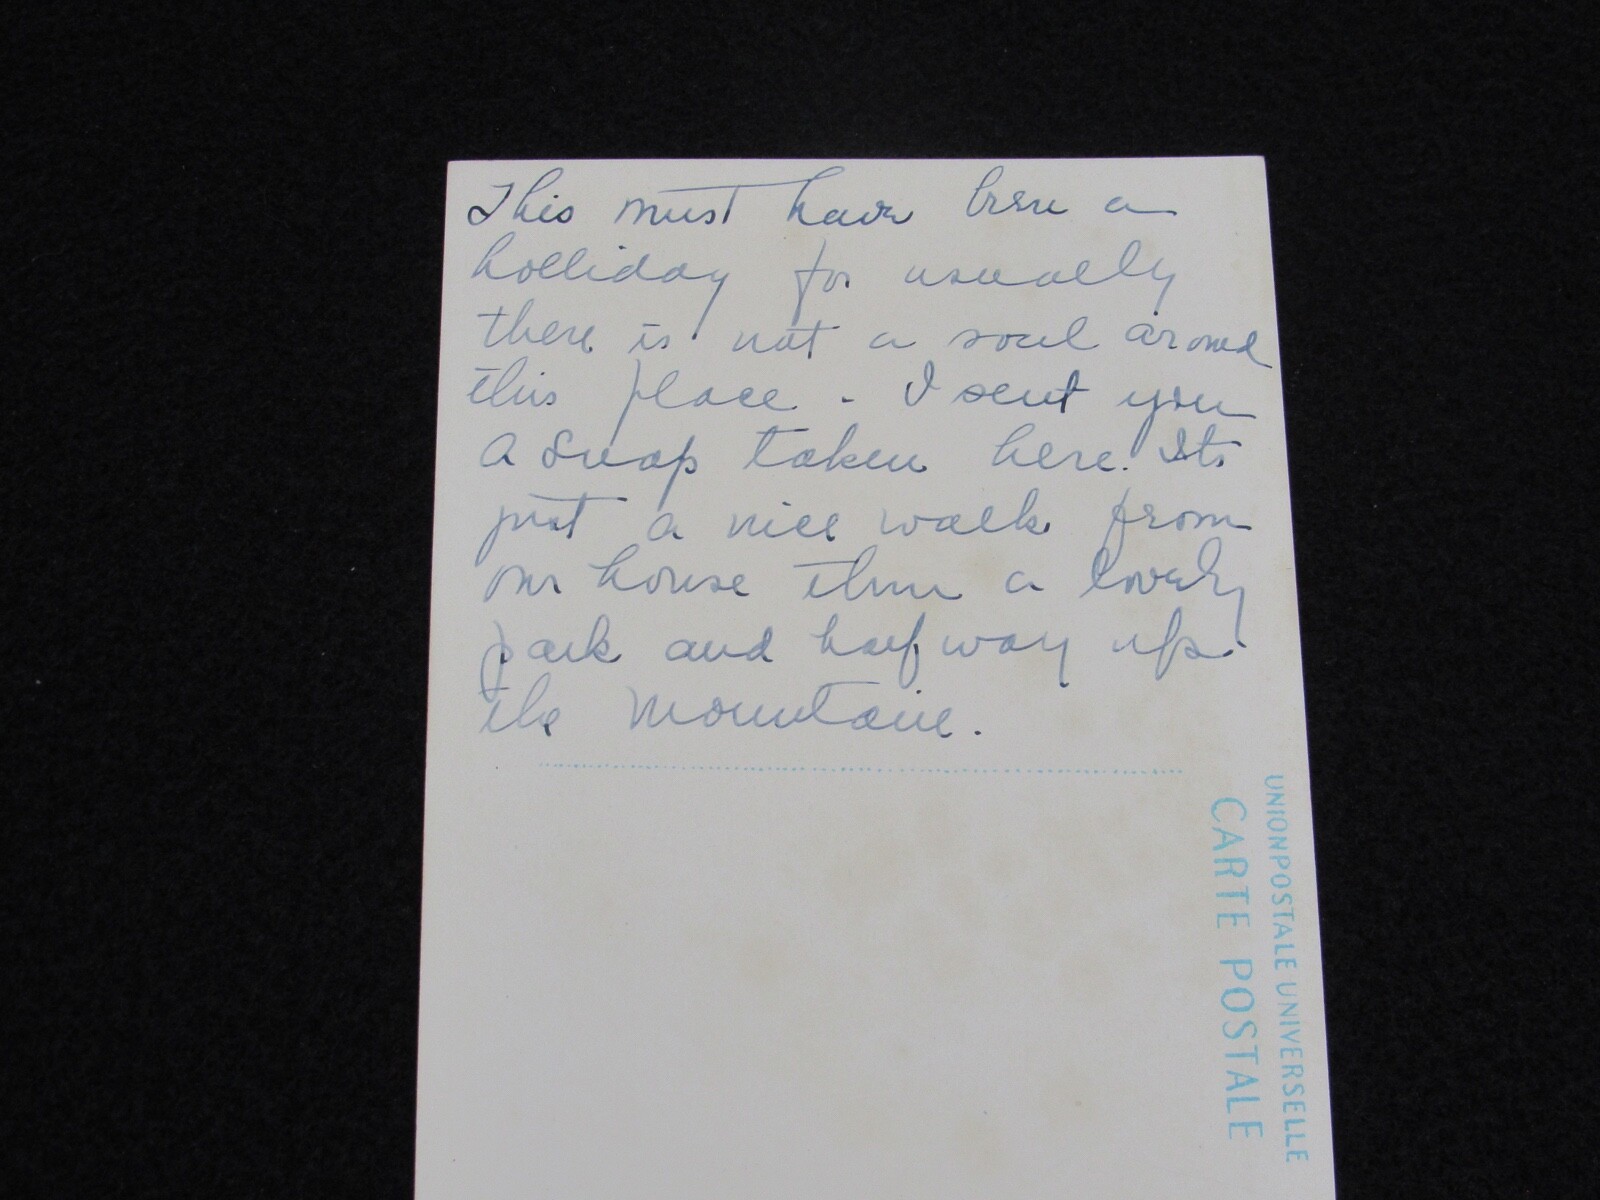 This must have been a
holliday for usually
there is not a soul around
this place. I sent you
a snap taken here. Its
just a nice walk from
our house thru a lovely
park and half way up
the mountain.
UNION POSTALE UNIVERSELLE
CARTE POSTALE